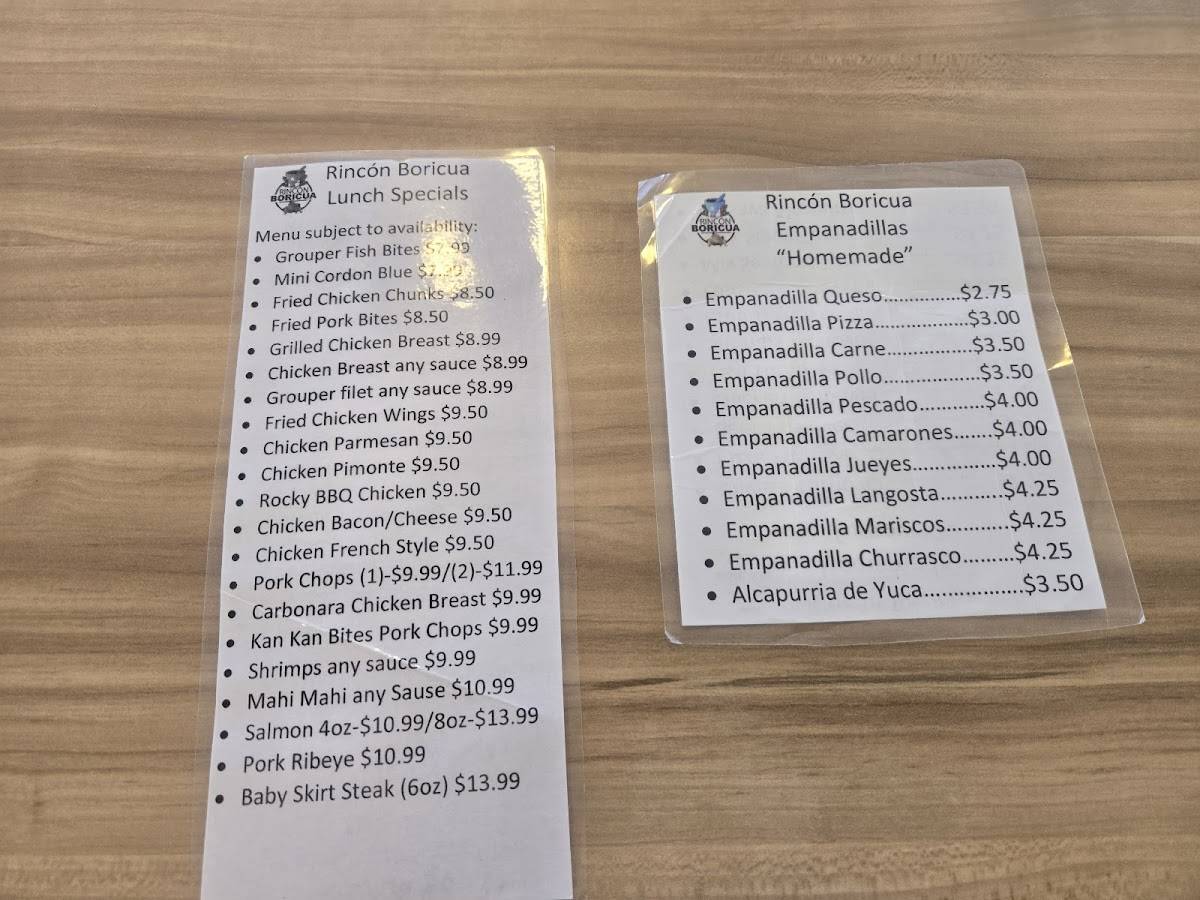 RINCÓN
BORICUA
Rincón Boricua
Lunch Specials
Menu subject to availability:
• Grouper Fish Bites $7.99
• Mini Cordon Blue $7.99
• Fried Chicken Chunks $8.50
• Fried Pork Bites $8.50
• Grilled Chicken Breast $8.99
• Chicken Breast any sauce $8.99
• Grouper filet any sauce $8.99
• Fried Chicken Wings $9.50
• Chicken Parmesan $9.50
• Chicken Pimonte $9.50
• Rocky BBQ Chicken $9.50
• Chicken Bacon/Cheese $9.50
• Chicken French Style $9.50
• Pork Chops (1)-$9.99/(2)-$11.99
• Carbonara Chicken Breast $9.99
• Kan Kan Bites Pork Chops $9.99
• Shrimps any sauce $9.99
• Mahi Mahi any Sause $10.99
• Salmon 4oz-$10.99/8oz-$13.99
• Pork Ribeye $10.99
• Baby Skirt Steak (6oz) $13.99
RINCÓN
BORICUA
Rincón Boricua
Empanadillas
“Homemade”
• Empanadilla Queso...............$2.75
• Empanadilla Pizza..................$3.00
• Empanadilla Carne................$3.50
• Empanadilla Pollo..................$3.50
• Empanadilla Pescado............$4.00
• Empanadilla Camarones.......$4.00
• Empanadilla Jueyes...............$4.00
• Empanadilla Langosta...........$4.25
• Empanadilla Mariscos...........$4.25
• Empanadilla Churrasco.........$4.25
• Alcapurria de Yuca.................$3.50